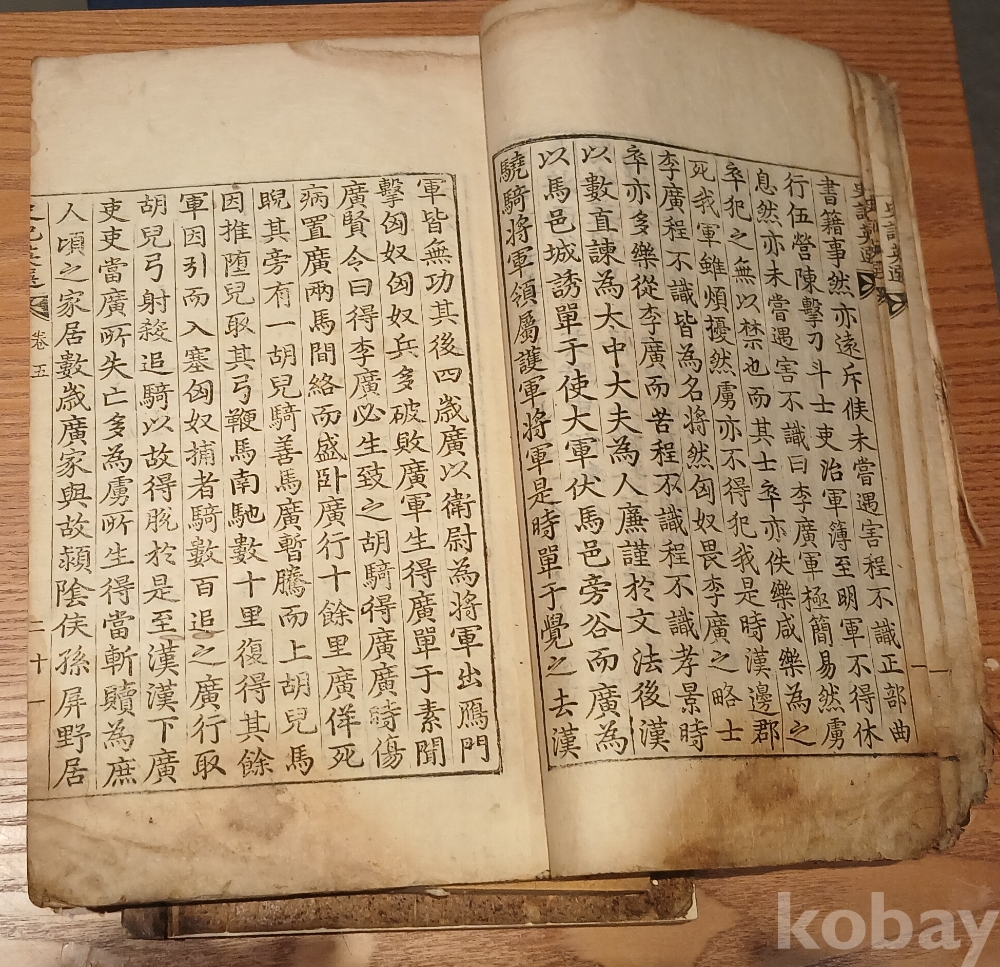 史記英選
史記英選
書籍事然亦遠斥候未嘗遇害程不識正部曲
行伍營陳擊刁斗士吏治軍簿至明軍不得休
息然亦未嘗遇害不識曰李廣軍極簡易然虜
卒犯之無以禁也而其士卒亦佚樂咸樂為之
死我軍雖煩擾然虜亦不得犯我是時漢邊郡
李廣程不識皆為名將然匈奴畏李廣之略士
卒亦多樂從李廣而苦程不識程不識孝景時
以數直諫為大中大夫為人廉謹於文法後漢
以馬邑城誘單于使大軍伏馬邑旁谷而廣為
驍騎將軍領屬護軍將軍是時單于覺之去漢
軍皆無功其後四歲廣以衛尉為將軍出鴈門
擊匈奴匈奴兵多破敗廣軍生得廣單于素聞
廣賢令曰得李廣必生致之胡騎得廣廣時傷
病置廣兩馬間絡而盛卧廣行十餘里廣佯死
睨其旁有一胡兒騎善馬廣暫騰而上胡兒馬
因推堕兒取其弓鞭馬南馳數十里復得其餘
軍因引而入塞匈奴捕者騎數百追之廣行取
胡兒弓射殺追騎以故得脫於是至漢漢下廣
吏吏當廣所失亡多為虜所生得當斬贖為庶
人頃之家居數歲廣家與故潁陰侯孫屏野居
卷五 二十一
kobay